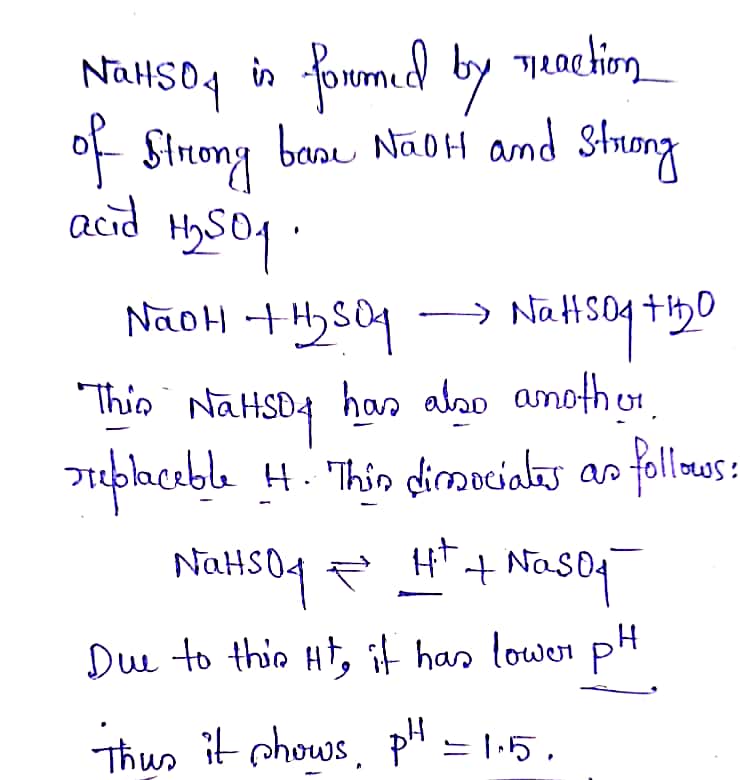 NaHSO4 is formed by reaction
of Strong base NaOH and Strong
acid H2SO4.
NaOH + H2SO4 → NaHSO4 + H2O
This NaHSO4 has also another
replaceble H. This dissociates as follows:
NaHSO4 ⇌ H+ + NaSO4−
Due to this H+, it has lower pH.
Thus it shows, pH = 1.5.